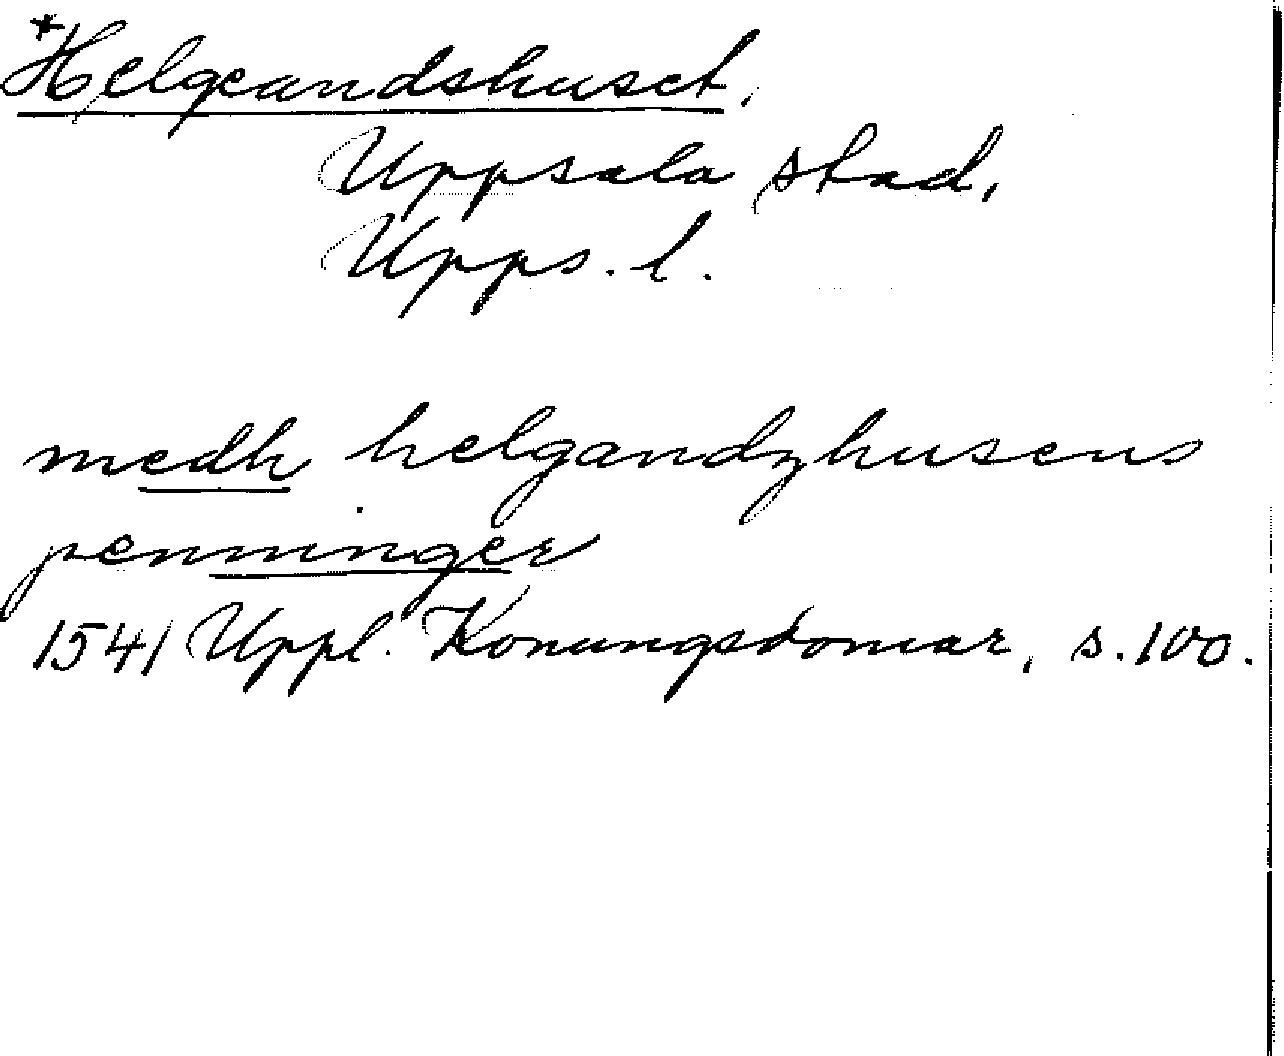 *Helgeandshuset.
Uppsala stad,
Upps. l.
medh helgandzhusens
penninger
1541 Uppl. Konungsdomar, s. 100.